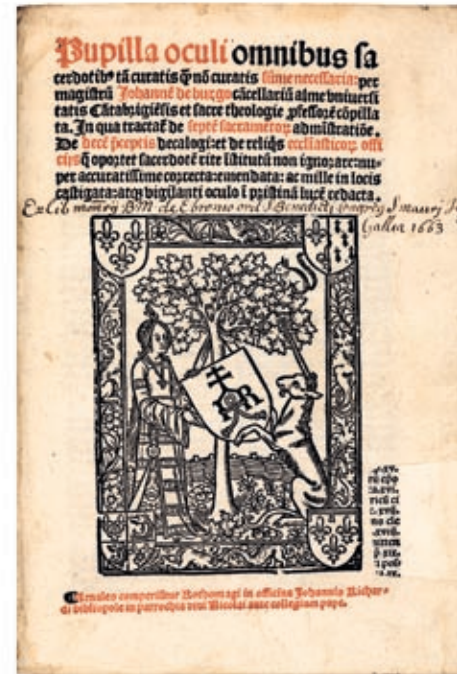 Pupilla oculi omnibus sa
cerdotibꝰ tã curatis q̃ nõ curatis sũme necessaria: per
magistrũ Johannẽ de burgo cãcellariũ alme vniuersi
tatis Cãtabrigiẽsis et sacre theologie ꝓfessorẽ cõpilla
ta. In qua tractat̃ de septẽ sacramẽtoꝝ admĩstratiõe.
De decẽ p̃ceptis decalogi: et de reliq̃s ecclĩasticoꝝ offi
cijs q̃ oportet sacerdotẽ rite ĩstitutũ non ignorare: nu-
per accuratissime correcta: emendata: ac mille in locis
castigata: atq̃ vigilanti oculo ĩ pristinã lucẽ redacta.
Ex lib monrij B M de Ebronio ord S Benedicti S mauri
Gallia 1663
R
Uenales comperiũtur Rothomagi in officina Johannis Richar-
di bibliopole in parrochia diui Nicolai ante collegium pape.